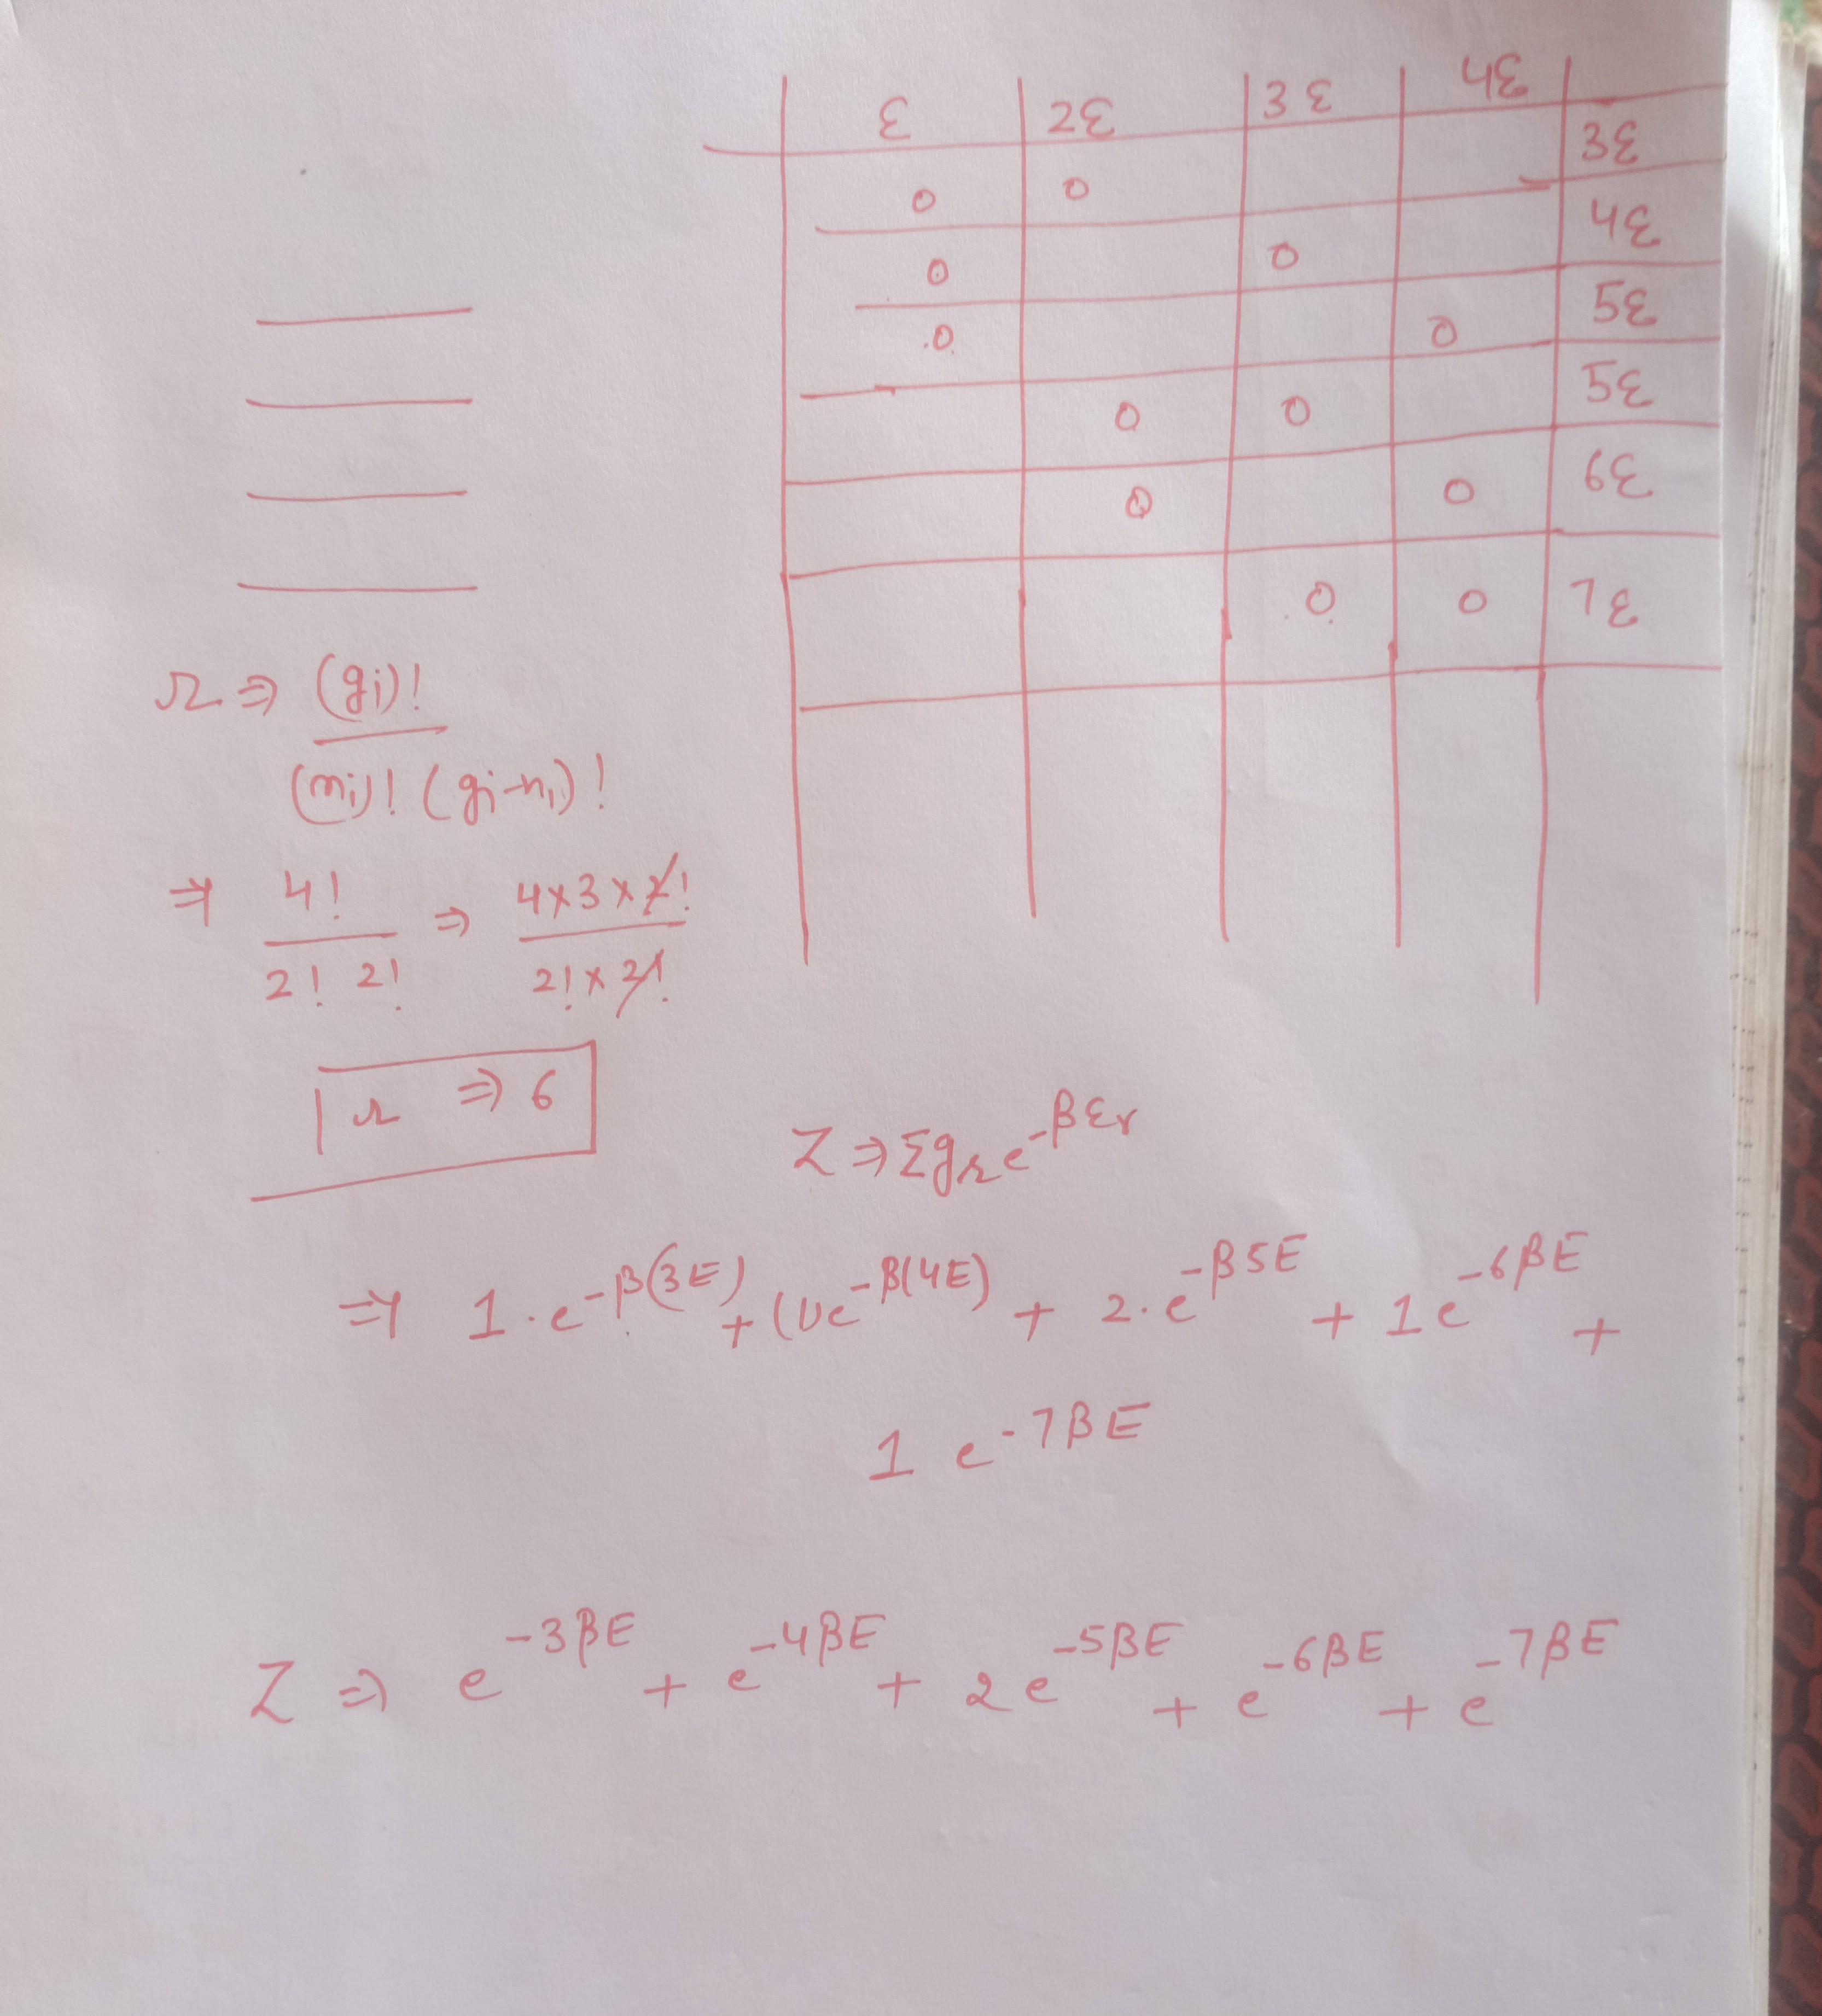 ε 2ε 3ε 4ε
0 0 3ε
0 0 4ε
0 0 5ε
0 0 5ε
0 0 6ε
0 0 7ε
Ω ⇒ (gi)!
(ni)! (gi-ni)!
⇒ 4! ⇒ 4×3×2!
2! 2! 2!×2!
r ⇒ 6
Z ⇒ Σgr e^-βεr
⇒ 1·e^-β(3E) + (1)e^-β(4E) + 2·e^-β5E + 1e^-6βE +
1 e^-7βE
Z ⇒ e^-3βE + e^-4βE + 2e^-5βE + e^-6βE + e^-7βE